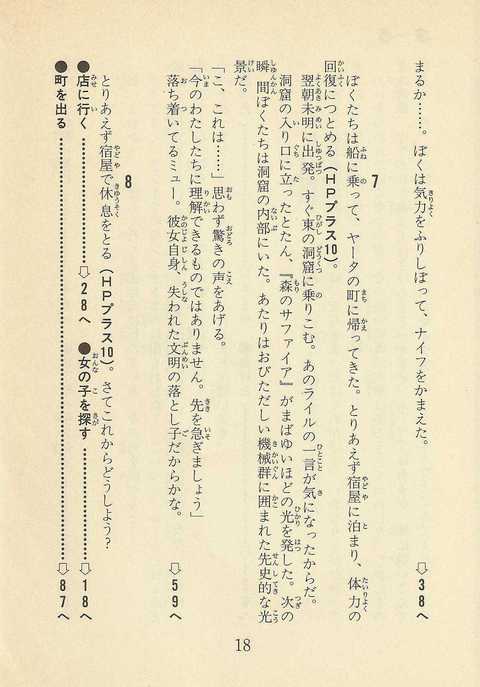 まるか……。ぼくは気力をふりしぼって、ナイフをかまえた。
⇨38へ
7
ぼくたちは船に乗って、ヤータの町に帰ってきた。とりあえず宿屋に泊まり、体力の
回復につとめる(HPプラス10)。
翌朝未明に出発。すぐ東の洞窟に乗りこむ。あのライルの一言が気になったからだ。
洞窟の入り口に立ったとたん、『森のサファイア』がまばゆいほどの光を発した。次の
瞬間ぼくたちは洞窟の内部にいた。あたりはおびただしい機械群に囲まれた先史的な光
景だ。
「こ、これは……」思わず驚きの声をあげる。
「今のわたしたちに理解できるものではありません。先を急ぎましょう」
落ち着いてるミュー。彼女自身、失われた文明の落とし子だからかな。
⇨59へ
8
とりあえず宿屋で休息をとる(HPプラス10)。さてこれからどうしよう?
●店に行く…………⇨28へ ●女の子を探す…………⇨18へ
●町を出る…………⇨87へ
18